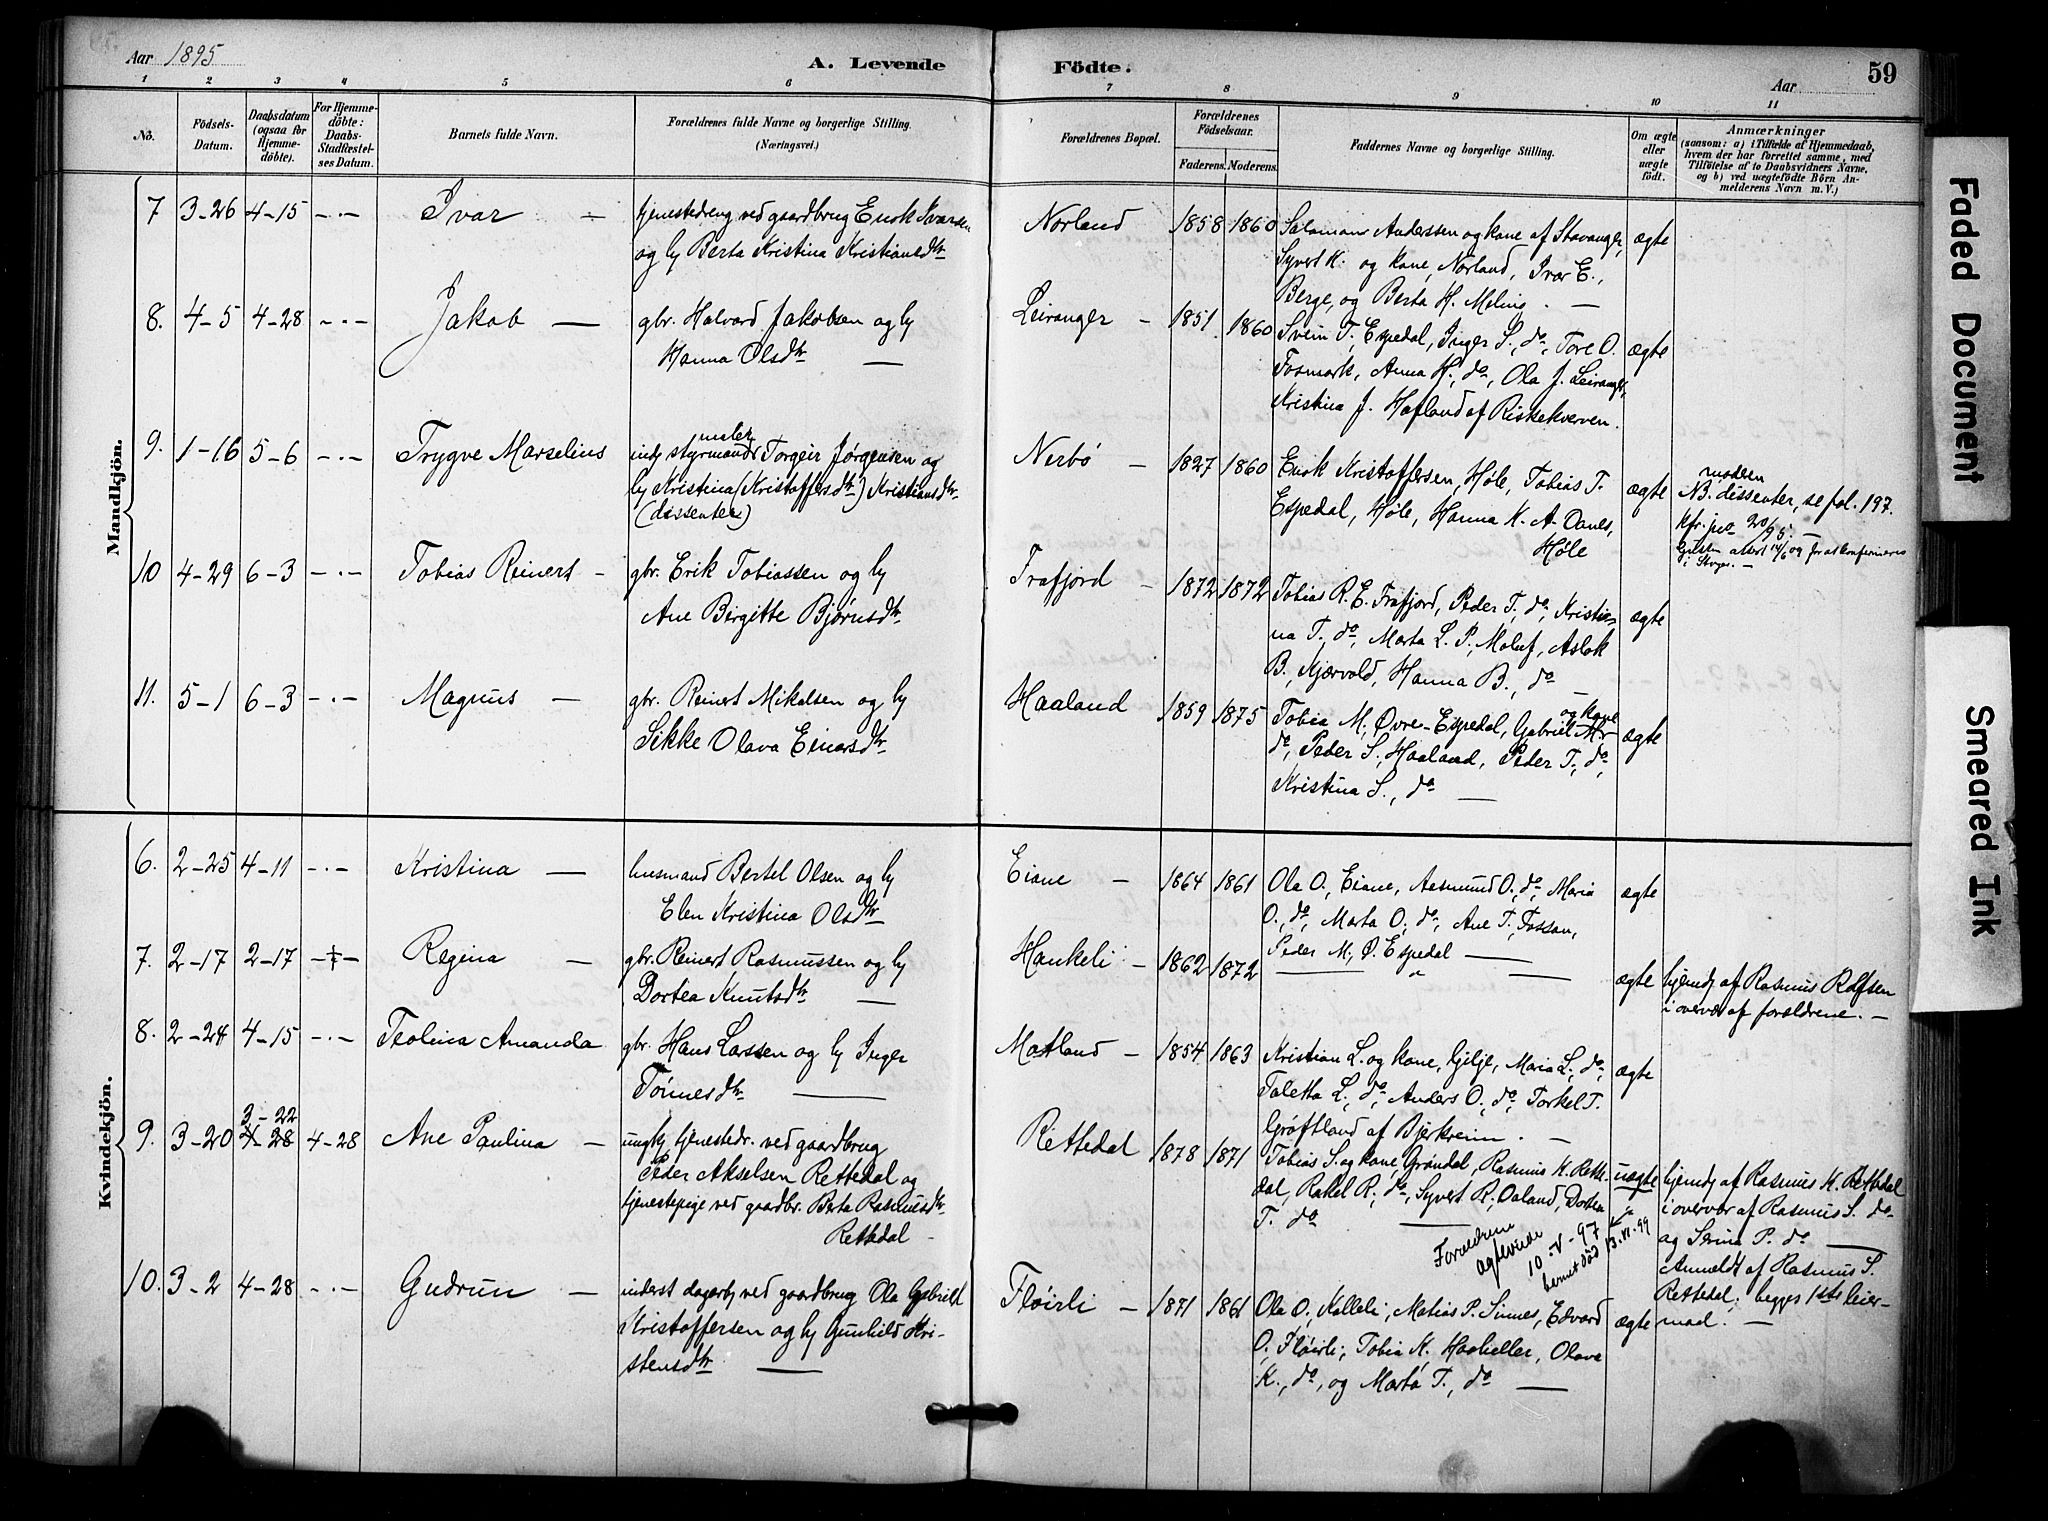 Aar 1895
A. Levende
Födte.
Aar
59
1 2 3 4 5 6 7 8 9 10 11
No.
Födsels-
Datum.
Daabsdatum
(ogsaa for
Hjemme-
döbte).
For Hjemme-
döbte:
Daabs-
Stadfæstel-
ses Datum.
Barnets fulde Navn.
Forældrenes fulde Navne og borgerlige Stilling.
(Næringsvei.)
Forældrenes Bopæl.
Forældrenes
Födselsaar.
Faderens. Moderens.
Faddernes Navne og borgerlige Stilling.
Om ægte
eller
uægte
födt.
Anmærkninger
(saasom: a) i Tilfælde af Hjemmedaab,
hvem der har forrettet samme, med
Tilföielse af to Daabsvidners Navne,
og b) ved uægtefödte Börn An-
melderens Navn m. V.)
Mandkjön.
7 3-26 4-15 -·- Ivar —
tjenestedreng ved gaardbrug Enok Ivarsen
og hy Berta Kristina Kristiansdtr
Norland 1858 1860
Salamon Anderssen og kone af Stavanger,
Syvert K. og kone, Norland, Ivar E.,
Berge, og Berta H. Meling. —
ægte
8. 4-5 4-28 -·- Jakob —
gbr. Halvard Jakobsen og hy
Hanna Olsdtr —
Leiranger — 1851 1860
Svein T. Espedal, Inger S., do, Tore O.
Fosmark, Anna H., do, Ola J. Leiranger,
Kristina J. Hafland af Riskekverven.
ægte
9. 1-16 5-6 -·- Trygve Marselius
maler
indr styrmand Torgeir Jørgensen og
hy Kristina (Kristoffersdtr) Kristiansdtr
(dissenter)
Nerbö — 1827 1860
Enok Kristoffersen, Høle, Tobias T.
Espedal, Høle, Hanna K. A. Danes,
Høle
ægte
modern
NB. dissenter, se fol. 197.
Kfr. jno 20/95. —
10 4-29 6-3 -·- Tobias Reinert —
gbr. Erik Tobiassen og hy
Ane Birgitte Bjørnsdtr
Frafjord — 1872 1872
Tobias R. E. Frafjord, Peder T., do, Kristi-
na T., do, Marta L. P. Maluf, Aslak
B., Kjærvold, Hanna B., do —
ægte
11. 5-1 6-3 -·- Magnus —
gbr. Reinert Mikalsen og hy
Sikke Olava Einarsdtr
Haaland 1859 1875
og kone
Tobia M., Øvre-Espedal, Gabriel M.
do, Peder S., Haaland, Peder T., do,
Kristina S., do —
ægte
Kvindekjön.
6. 2-25 4-11 -·- Kristina —
husmand Bertel Olsen og hy
Elen Kristina Olsdtr
Eiane — 1864 1861
Ola O., Eiane, Aasmund O., do, Maria
O., do, Marta O., do, Ane T., Fossan,
Peder M., Ø. Espedal —
ægte
7. 2-17 2-17 -‡- Regina —
gbr. Reinert Rasmussen og hy
Dortea Knutsdtr —
Hankeli — 1862 1872
— " —
ægte
hjemdø af Rasmus Rolfsen
i overvær af forældrene. —
8. 2-24 4-15 -·- Teolina Amanda
gbr. Hans Larssen og hy Inger
Tönnesdtr —
Motland — 1854 1863
Kristian L. og kone, Gilje, Maria L., do,
Taletta L., do, Anders O., do, Torkel T.
Grøftland af Bjerkreim. —
ægte
9. 3-20 3-22 4-28 4-28 Ane Paulina —
ungk tjenestedr. ved gaardbrug
Peder Akselsen Rettedal og
tjenestepige ved gaardbr. Berta Rasmusdtr
Rettedal —
Rettedal 1878 1871
Tobias S. og kone, Grøndal, Rasmus K. Rette-
dal, Rakel R., do, Syvert R., Oaland, Dortea
T. do —
uægte
Forældrene
ægteviede
10-V-97
barnet död 13-VI-99
hjemdø af Rasmus K. Rettedal
i overvær af Rasmus S. do
og Serina P. do —
Anmeldt af Rasmus S.
Rettedal; begges 1ste leier-
maal. —
10. 3-2 4-28 -·- Gudrun —
inderst dagarb ved gaardbrug Ola Gabriel
Kristoffersen og hy Gunhild Kri-
stensdtr —
Fløirli — 1871 1861
Ola O., Kalleli, Matias P. Sinnes, Edvard
O., Fløirli, Tobia K. Haaheller, Olava
K., do, og Marta T., do —
ægte
Faded Document
Smeared Ink